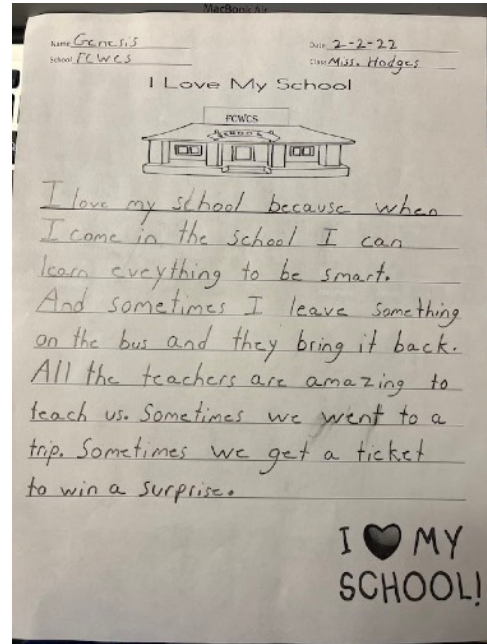 MacBook Air
Name Genesis
Date 2-2-22
School FCWCS
Class Miss. Hodges
I Love My School
FCWCS
SCHOOL
I love my school because when
I come in the school I can
learn eveything to be smart.
And sometimes I leave something
on the bus and they bring it back.
All the teachers are amazing to
teach us. Sometimes we went to a
trip. Sometimes we get a ticket
to win a surprise.
I ❤ MY
SCHOOL!